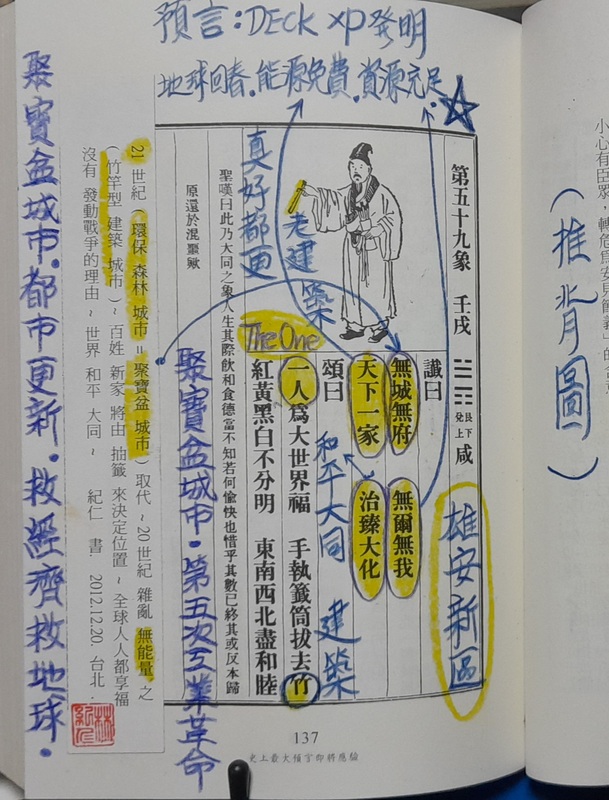 預言:DECK XP 發明
地球回春.能源免費.資源充足
(推背圖)
第五十九象 壬戌
艮下兌上 咸
讖曰
無城無府 無爾無我
天下一家 治臻大化
頌曰
一人為大世界福 手執籤筒拔去竹
紅黃黑白不分明 東南西北盡和睦
聖嘆曰此乃大同之象人生其際飲和食德當不知若何愉快也惜乎其數已終其或反本歸
原還於混噩歟
雄安新區
老建築
真好都更
The One
和平大同 建築
聚寶盆城市.第五次工業革命
21 世紀 ( 環保 森林 城市 = 聚寶盆 城市 ) 取代 ~20 世紀 雜亂 無能量 之
( 竹竿型 建築 城市 ) ~ 百姓 新家 將由 抽籤 來決定位置 ~ 全球人人都享福
沒有 發動戰爭的理由 ~ 世界 和平 大同 ~ 紀仁 書. 2012.12.20. 台北.
聚寶盆城市.都市更新.救經濟救地球.
137
史上最大預言即將應驗